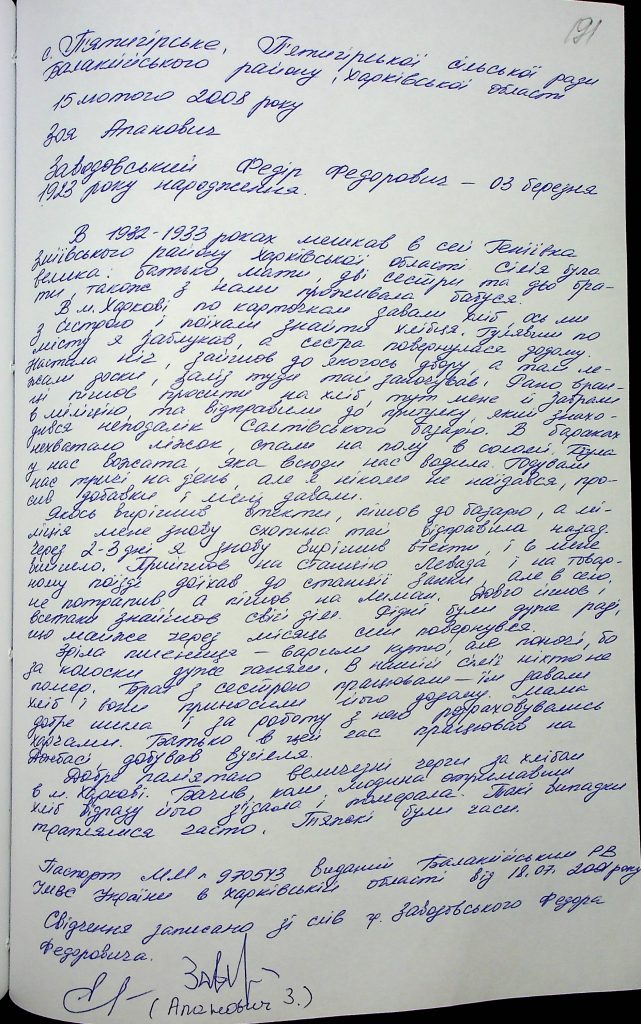 191
с. П'ятигірське, П'ятигірської сільської ради
Балаклійського району, Харківської області
15 лютого 2008 року
Зоя Апанович
Заводовський Федір Федорович – 03 березня
1923 року народження.
В 1932-1933 роках мешкав в селі Геніївка
Зміївського району Харківської області. Сім'я була
велика: батько, мати, дві сестри та два бра-
ти, також з нами проживала бабуся.
В м. Харкові по карточкам давали хліб ось ми
з сестрою і поїхали знайти хлібця. Гуляючи по
місту я заблукав, а сестра повернулася додому.
Настала ніч, зайшов до якогось двору, а там ле-
жали доски, заліз туди там заночував. Рано вран-
ці пішов просити на хліб, тут мене й забрали
в міліцію, та відправили до притулку, який знахо-
дився неподалік Салтівського базарю. В бараках
нехватало ліжок, спали на полу в соломі. Була
у нас вожата, яка всюди нас водила. Годували
нас тричі на день, але я ніколи не наїдався, про-
сив добавки і мені давали.
Якось вирішив втекти, пішов до базарю, а мі-
ліція мене знову схопила там відправила назад.
Через 2-3 дні я знову вирішив втекти, і в мене
вийшло. Прийшов на станцію Левада і на товар-
ному поїзді доїхав до станції Занки, але в село
не потрапив а пішов на Лиман. Довго йшов і
всетаки знайшов свій дім. Рідні були дуже раді,
що майже через місяць син повернувся.
Зріла пшениця – варили кутю, але поночі, бо
за колоски дуже ганяли. В нашій сім'ї ніхто не
помер. Брат з сестрою працювали – їм давали
хліб і вони приносили його додому. Мама
добре шила і за роботу з нею розраховувались
харчами. Батько в цей час працював на
Донбасі добував вугілля.
Добре пам'ятаю величезні черги за хлібом
в м. Харкові. Бачив, коли людина отримавши
хліб відразу його з'їдала і помирала. Такі випадки
траплялися часто. Тяжкі були часи.
Паспорт ММ № 970543 виданий Балаклійським РВ
УМВС України в Харківській області від 18.07. року
Свідчення записано зі слів гр. Заводовського Федора
Федоровича.
(Апанович З.)